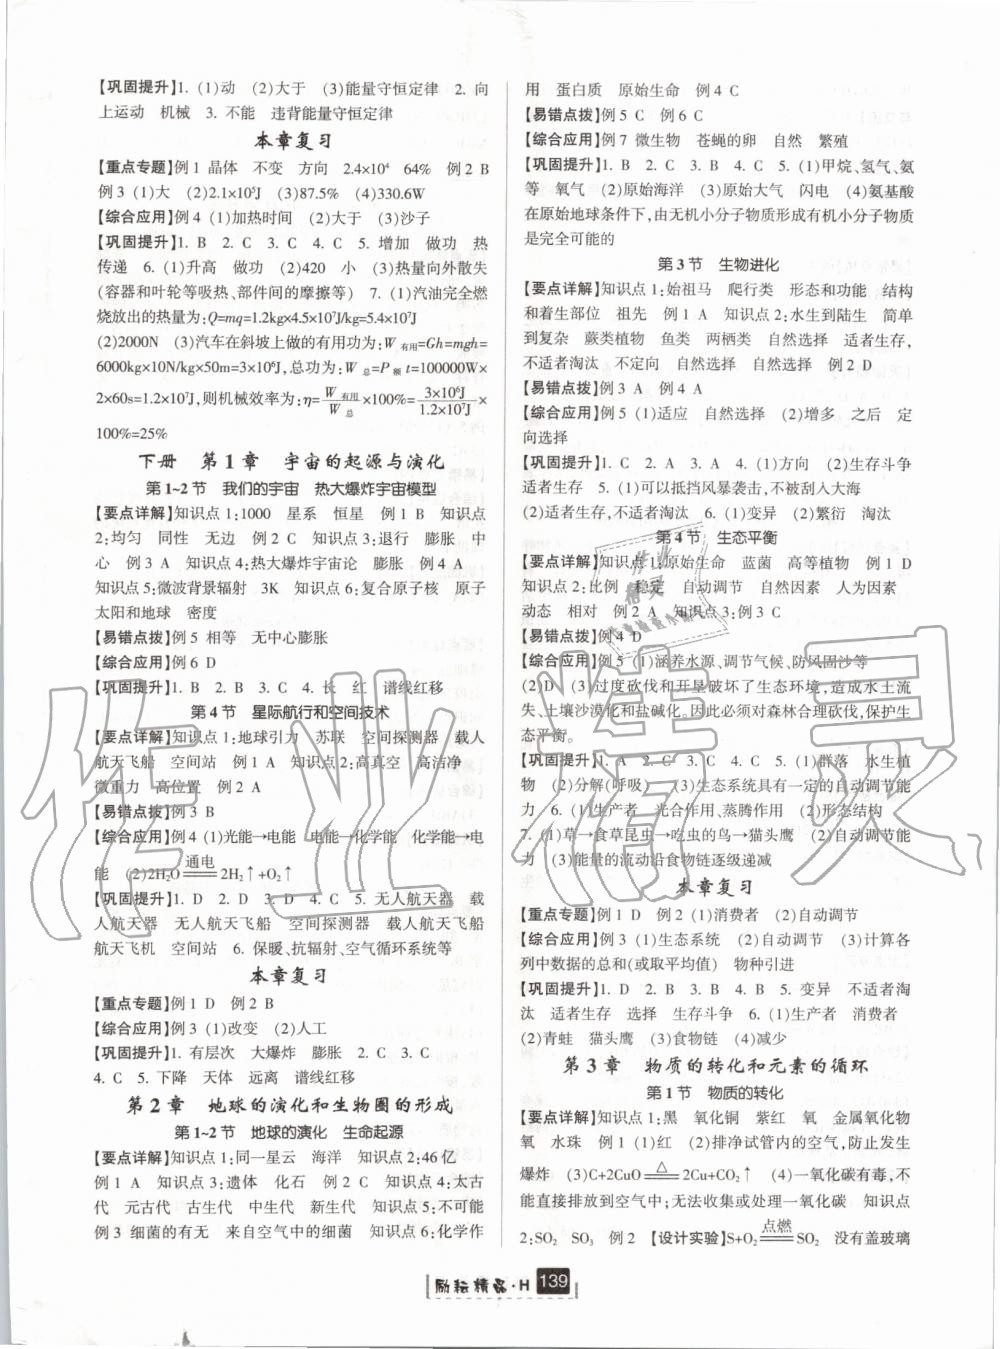 【巩固提升】1. (1)动　(2)大于　(3)能量守恒定律　2. 向
上运动　机械　3. 不能　违背能量守恒定律
本章复习
【重点专题】例 1 晶体　不变　方向　2.4×10⁴　64%　例 2 B
例 3 (1)大　(2)2.1×10⁵J　(3)87.5%　(4)330.6W
【综合应用】例 4 (1)加热时间　(2)大于　(3)沙子
【巩固提升】1. B　2. C　3. C　4. C　5. 增加　做功　热
传递　6. (1)升高　做功　(2)420　小　(3)热量向外散失
(容器和叶轮等吸热、部件间的摩擦等)　7. (1)汽油完全燃
烧放出的热量为:Q=mq=1.2kg×4.5×10⁷J/kg=5.4×10⁷J
(2)2000N　(3)汽车在斜坡上做的有用功为:W有用=Gh=mgh=
6000kg×10N/kg×50m=3×10⁶J,总功为:W总=P额t=100000W×
2×60s=1.2×10⁷J,则机械效率为:η=W有用/W总×100%=3×10⁶J/1.2×10⁷J×
100%=25%
下册　第 1 章　宇宙的起源与演化
第 1~2 节　我们的宇宙　热大爆炸宇宙模型
【要点详解】知识点 1:1000　星系　恒星　例 1 B　知识点
2:均匀　同性　无边　例 2 C　知识点 3:退行　膨胀　中
心　例 3 A　知识点 4:热大爆炸宇宙论　膨胀　例 4 A
知识点 5:微波背景辐射　3K　知识点 6:复合原子核　原子
太阳和地球　密度
【易错点拨】例 5 相等　无中心膨胀
【综合应用】例 6 D
【巩固提升】1. B　2. B　3. C　4. 长　红　谱线红移
第 4 节　星际航行和空间技术
【要点详解】知识点 1:地球引力　苏联　空间探测器　载人
航天飞船　空间站　例 1 A　知识点 2:高真空　高洁净
微重力　高位置　例 2 A
【易错点拨】例 3 B
【综合应用】例 4 (1)光能→电能　电能→化学能　化学能→电
能　(2)2H₂O 通电 2H₂↑+O₂↑
【巩固提升】1. D　2. D　3. A　4. C　5. 无人航天器　载
人航天器　无人航天飞船　空间探测器　载人航天飞船
航天飞机　空间站　6. 保暖、抗辐射、空气循环系统等
本章复习
【重点专题】例 1 D　例 2 B
【综合应用】例 3 (1)改变　(2)人工
【巩固提升】1. 有层次　大爆炸　膨胀　2. C　3. C
4. C　5. 下降　天体　远离　谱线红移
第 2 章　地球的演化和生物圈的形成
第 1~2 节　地球的演化　生命起源
【要点详解】知识点 1:同一星云　海洋　知识点 2:46 亿
例 1 A　知识点 3:遗体　化石　例 2 C　知识点 4:太古
代　元古代　古生代　中生代　新生代　知识点 5:不可能
例 3 细菌的有无　来自空气中的细菌　知识点 6:化学作
用　蛋白质　原始生命　例 4 C
【易错点拨】例 5 C　例 6 C
【综合应用】例 7 微生物　苍蝇的卵　自然　繁殖
【巩固提升】1. B　2. C　3. B　4. C　5. (1)甲烷、氢气、氨
等　氧气　(2)原始海洋　(3)原始大气　闪电　(4)氨基酸
在原始地球条件下,由无机小分子物质形成有机小分子物质
是完全可能的
第 3 节　生物进化
【要点详解】知识点 1:始祖马　爬行类　形态和功能　结构
和着生部位　祖先　例 1 A　知识点 2:水生到陆生　简单
到复杂　蕨类植物　鱼类　两栖类　自然选择　适者生存,
不适者淘汰　不定向　自然选择　自然选择　例 2 D
【易错点拨】例 3 A　例 4 A
【综合应用】例 5 (1)适应　自然选择　(2)增多　之后　定
向选择
【巩固提升】1. C　2. A　3. A　4. (1)方向　(2)生存斗争
适者生存　5. (1)可以抵挡风暴袭击,不被刮入大海
(2)适者生存,不适者淘汰　6. (1)变异　(2)繁衍　淘汰
第 4 节　生态平衡
【要点详解】知识点 1:原始生命　蓝菌　高等植物　例 1 D
知识点 2:比例　稳定　自动调节　自然因素　人为因素
动态　相对　例 2 A　知识点 3:例 3 C
【易错点拨】例 4 D
【综合应用】例 5 (1)涵养水源、调节气候、防风固沙等
(2)D　(3)过度砍伐和开垦破坏了生态环境,造成水土流
失、土壤沙漠化和盐碱化。因此必须对森林合理砍伐,保护生
态平衡。
【巩固提升】1. A　2. C　3. A　4. C　5. (1)群落　水生植
物　(2)分解(呼吸)　(3)生态系统具有一定的自动调节能
力　6. (1)生产者　光合作用、蒸腾作用　(2)形态结构
7. (1)草→食草昆虫→吃虫的鸟→猫头鹰　(2)自动调节能
力　(3)能量的流动沿食物链逐级递减
本章复习
【重点专题】例 1 D　例 2 (1)消费者　(2)自动调节
【综合应用】例 3 (1)生态系统　(2)自动调节　(3)计算各
列中数据的总和(或取平均值)　物种引进
【巩固提升】1. D　2. B　3. B　4. B　5. 变异　不适者淘
汰　适者生存　选择　生存斗争　6. (1)生产者　消费者
(2)青蛙　猫头鹰　(3)食物链　(4)减少
第 3 章　物质的转化和元素的循环
第 1 节　物质的转化
【要点详解】知识点 1:黑　氧化铜　紫红　氧　金属氧化物
氧　水珠　例 1 (1)红　(2)排净试管内的空气,防止发生
爆炸　(3)C+2CuO △ 2Cu+CO₂↑　(4)一氧化碳有毒,不
能直接排放到空气中;无法收集或处理一氧化碳　知识点
2:SO₂　SO₃　例 2 【设计实验】S+O₂ 点燃 SO₂　没有盖玻璃
励耘精品·H 139
作业精灵